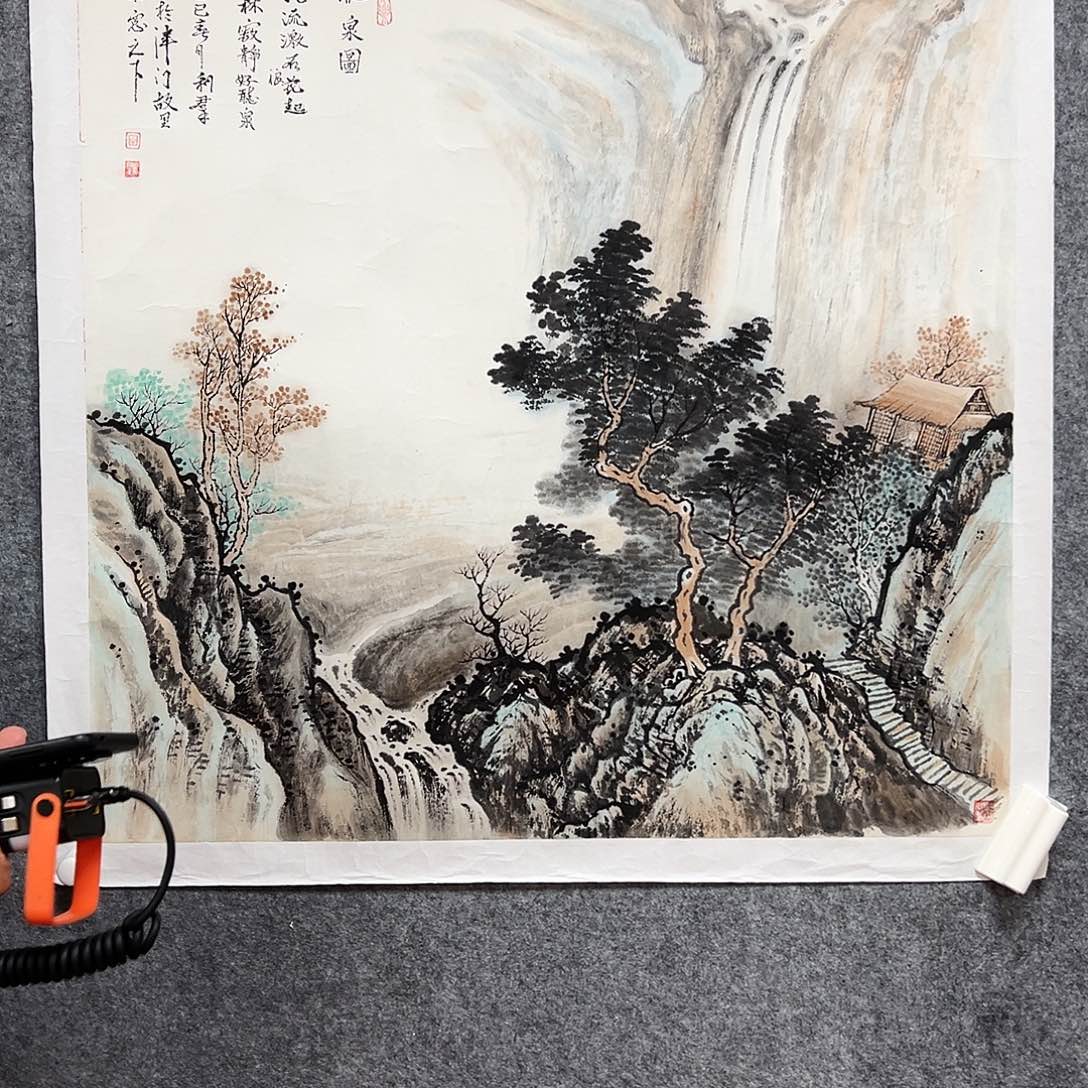 泉圖
流激石花起
林寂靜好聽泉
已春月利群
於津门故里
窓之下